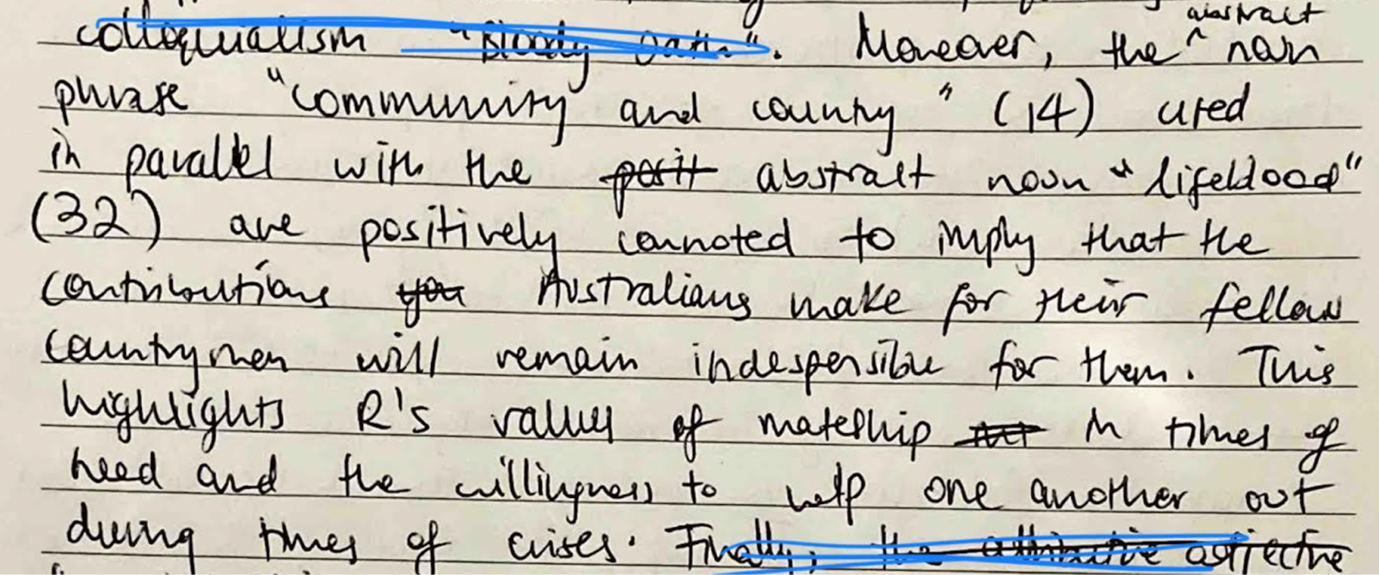 abstract
colloquialism "Bloody oath". Moreover, the ^ noun
phrase "community and country" (14) used
in parallel with the posit abstract noun "lifeblood"
(32) are positively connoted to imply that the
contributions you Australians make for their fellow
countrymen will remain indespensible for them. This
highlights R's values of mateship in times of
need and the willingness to help one another out
during times of crises. Finally, the attributive adjective